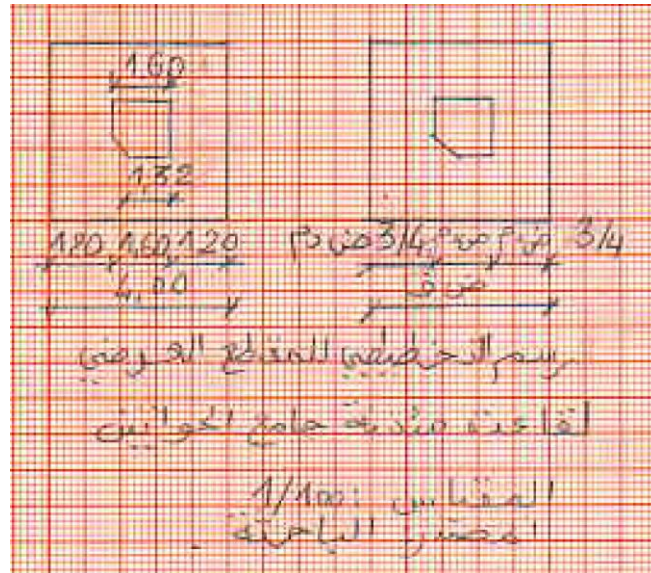 1.60
1,32
120 1,60 120
3/4 ض م ض م 3/4 ض م
4,00
ض ف
رسم التخطيطي للمقطع العرضي
لقاعدة مئذنة جامع الحواتين
المقياس : 1/100
المصدر الباحثة .